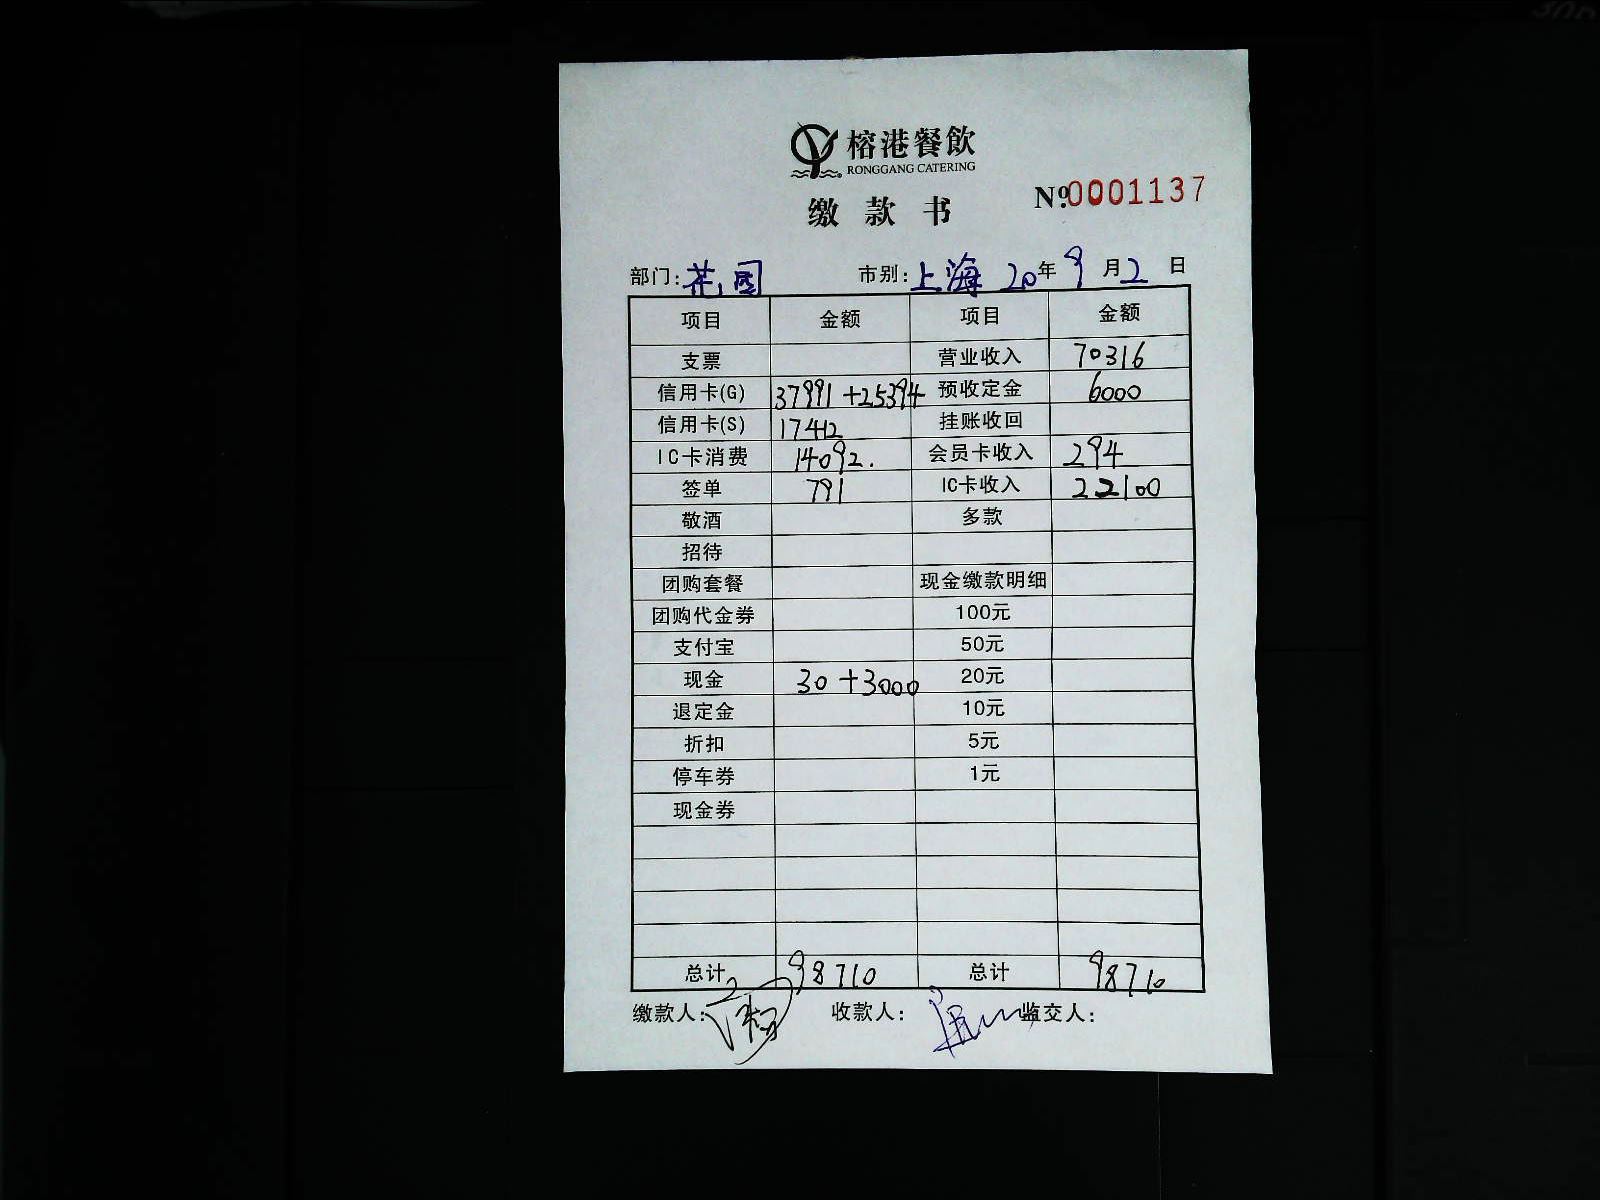 榕港餐飲
RONGGANG CATERING
缴款书 Nº.0001137
部门:花园 市别:上海 20年9月2日
项目 金额 项目 金额
支票 营业收入 70316
信用卡(G) 37991+25394 预收定金 6000
信用卡(S) 17412 挂账收回
IC卡消费 14092. 会员卡收入 294
签单 791 IC卡收入 22100
敬酒 多款
招待
团购套餐 现金缴款明细
团购代金券 100元
支付宝 50元
现金 30+3000 20元
退定金 10元
折扣 5元
停车券 1元
现金券
总计 98710 总计 98710
缴款人: 收款人: 监交人: